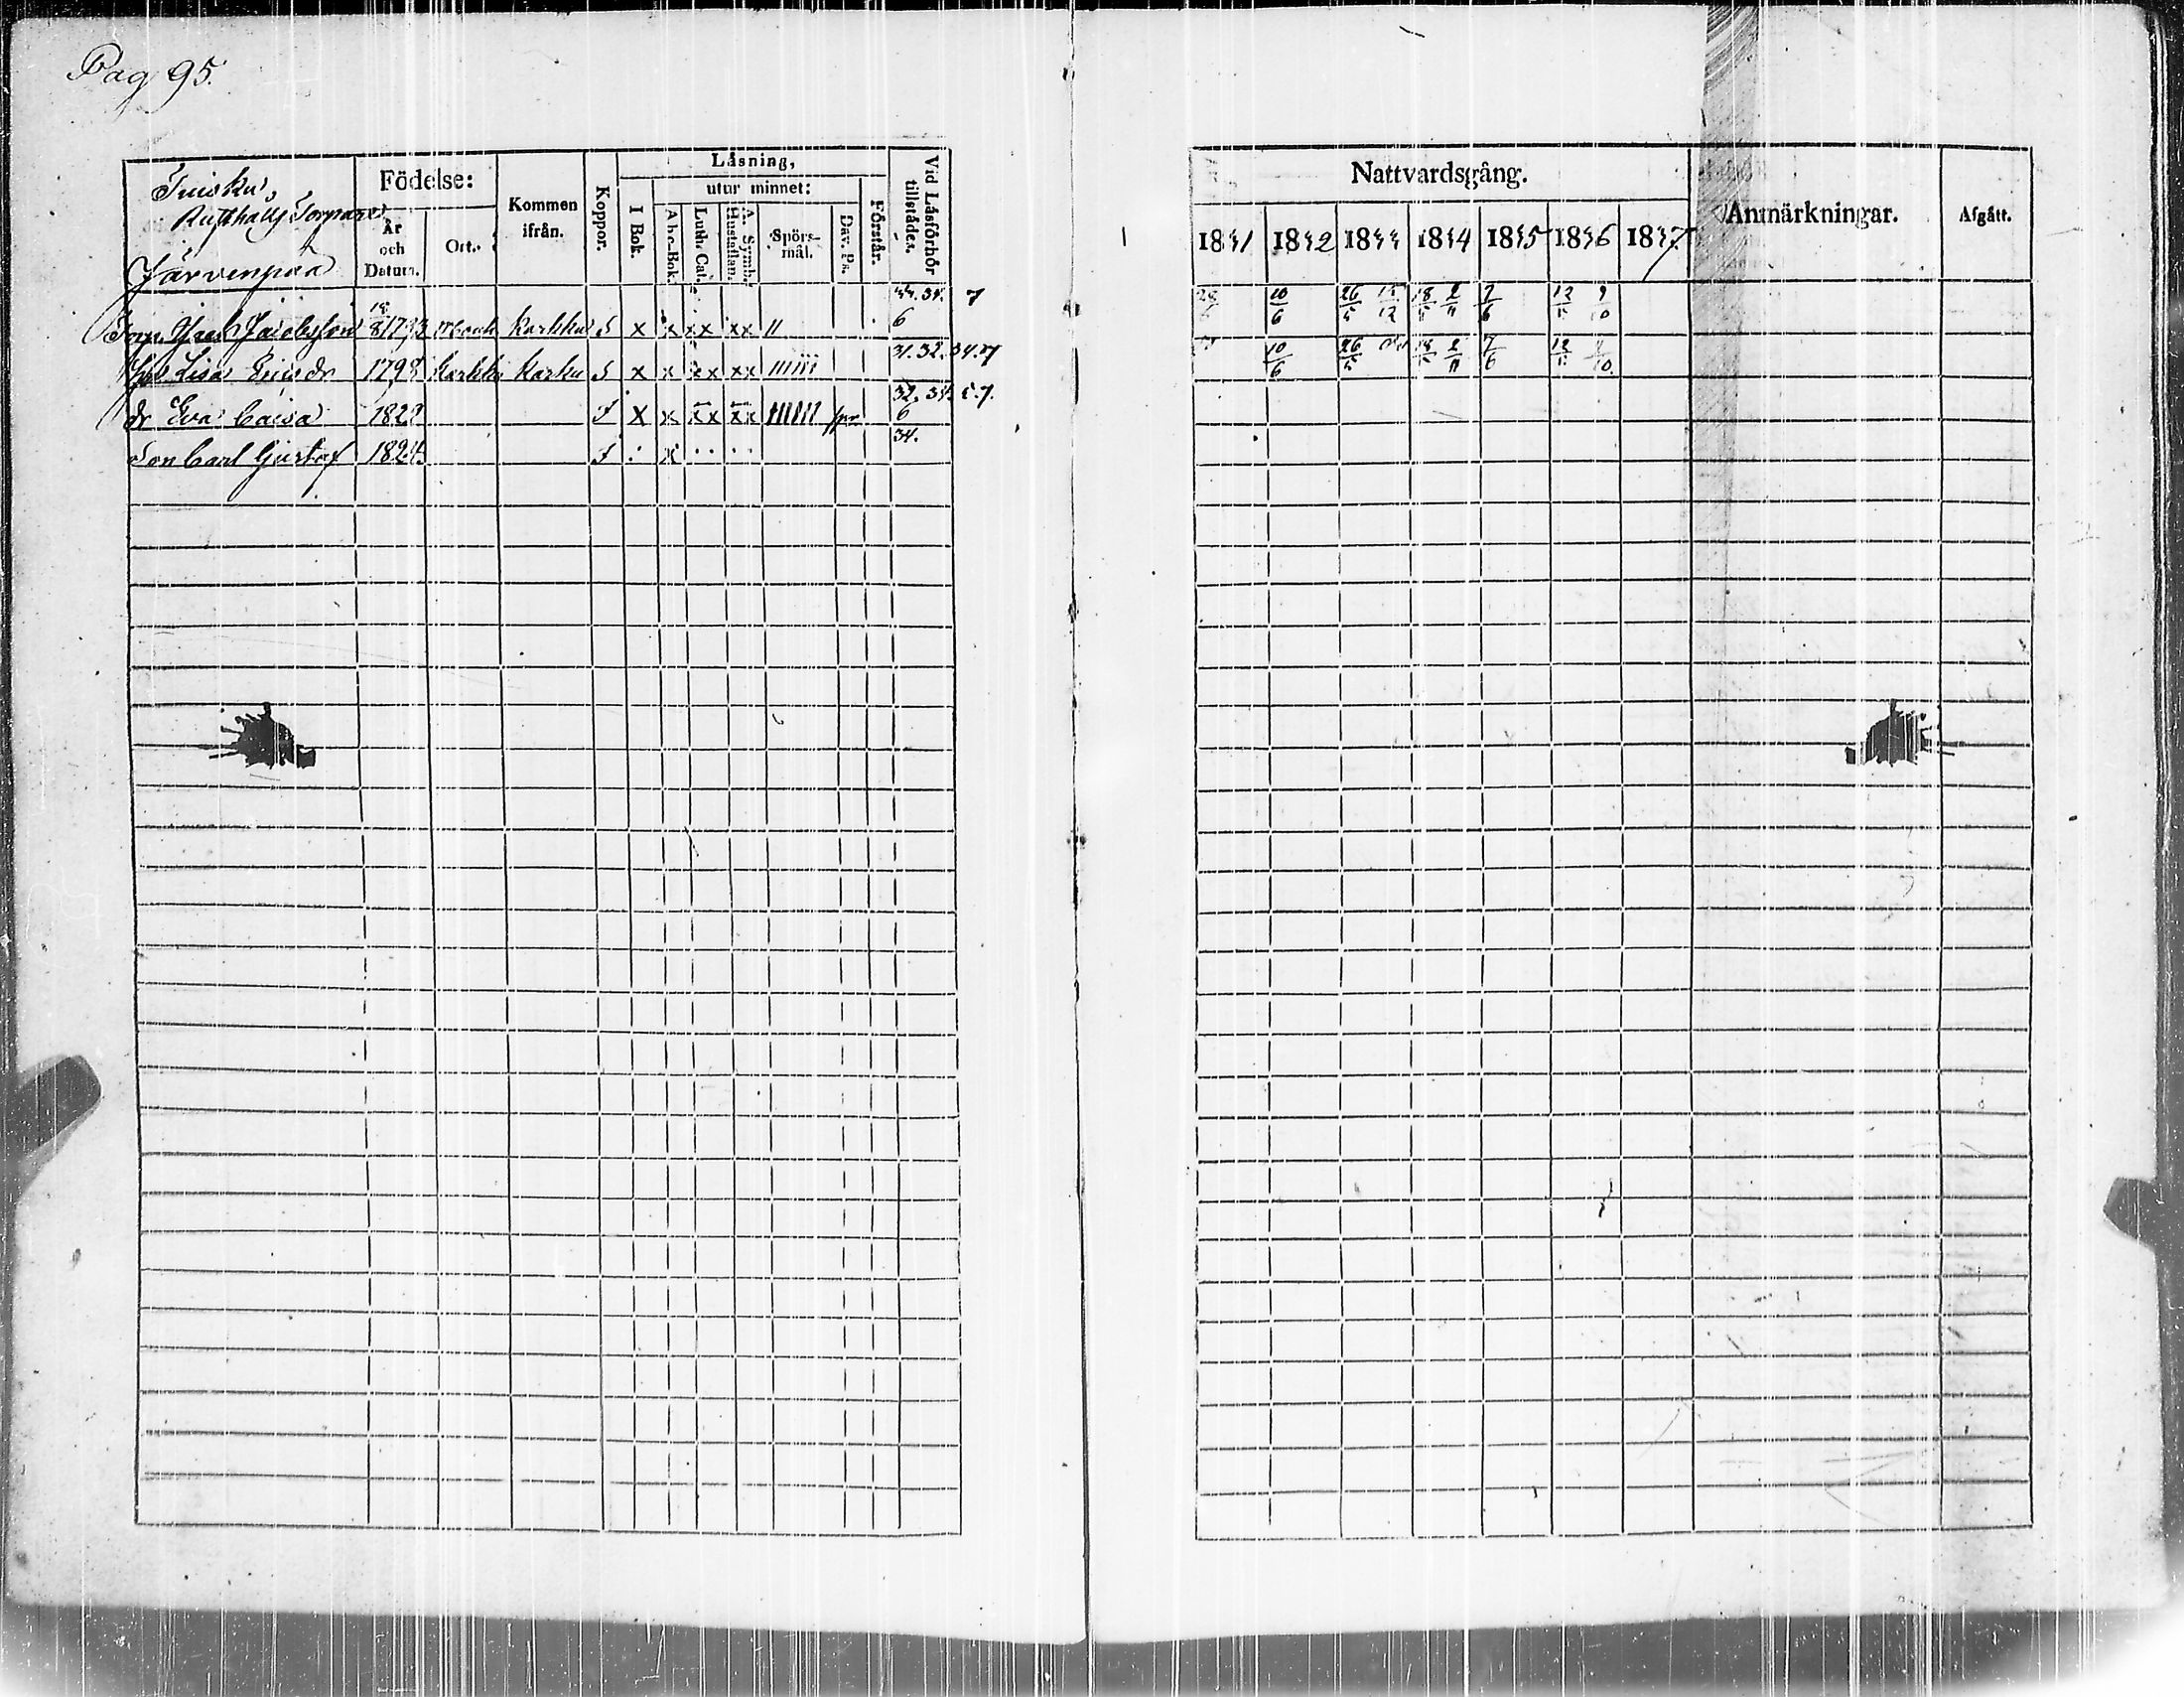 Pag 95.
Tuisku,
Rusthålls Torpare
Järvenpää
Födelse:
År och Datum.
Ort.
Kommen ifrån.
Koppor.
Läsning,
I Bok.
utur minnet:
Abc-Bok.
Luth. Cat.
A. Symb. Hustaflan.
Spörsmål.
Dav. Ps.
Förstår.
Vid Läsförhör tillstädes.
Jacobsson Karkku S x x xx xx 11 6 7
Lisa Ericsdr 1798 Karkku Karku S x x xx xx 31.32.34.7
dr Eva Caisa 1822 S x x xx xx 32. 34. 6
Son Carl Gustaf 1824 S x 34.
Nattvardsgång.
1831 1832 1833 1834 1835 1836 1837
Anmärkningar.
Afgått.
10/6 26/5 18/5 2/11 7/6 12/5 9/10
10/6 26/5 18/5 2/11 7/6 12/5